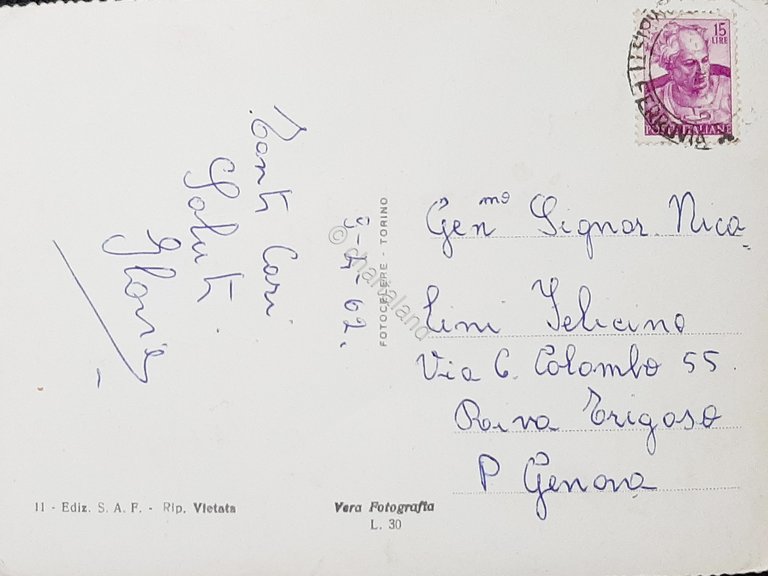 Tanti Cari
Saluti
5-4-62.
FOTOCELERE - TORINO
15
LIRE
POSTE ITALIANE
FERROVIA
Gen.mo Signor Nico
lini Felicino
Via C. Colombo 55
Riva Trigoso
P Genova
11 - Ediz. S. A. F. - Rip. Vietata
Vera Fotografia
L. 30
© chartaland